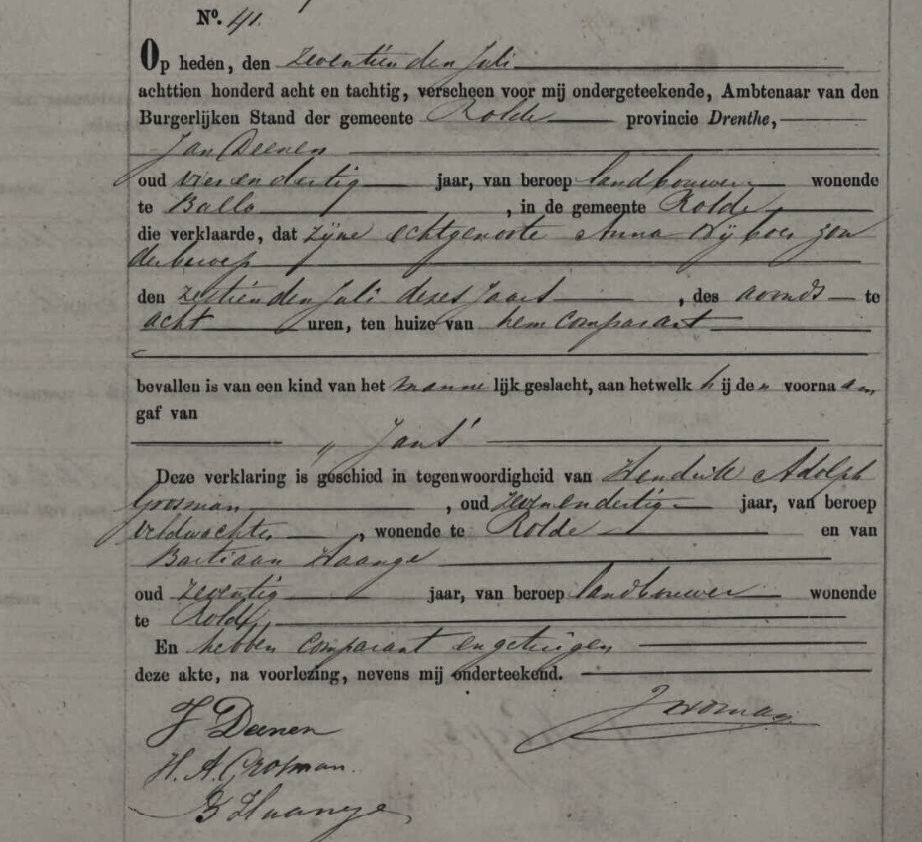 No. 41.
Op heden, den zeventienden Juli
achttien honderd acht en tachtig, verscheen voor mij ondergeteekende, Ambtenaar van den
Burgerlijken Stand der gemeente Rolde provincie Drenthe,
Jan Deenen
oud vier en dertig jaar, van beroep landbouwer wonende
te Ballo , in de gemeente Rolde
die verklaarde, dat zijne echtgenoote Anna Nijboer zon
der beroep
den zestienden Juli dezes Jaars , des avonds te
acht uren, ten huize van hem comparant
bevallen is van een kind van het mannelijk geslacht, aan hetwelk hij den voornaam
gaf van
„ Jans"
Deze verklaring is geschied in tegenwoordigheid van Hendrik Adolph
Grosman , oud zevenendertig jaar, van beroep
veldwachter , wonende te Rolde en van
Bastiaan Haange
oud zeventig jaar, van beroep landbouwer wonende
te Rolde,
En hebben comparant en getuigen
deze akte, na voorlezing, nevens mij onderteekend.
J Deenen
H. A. Grosman.
B Haange